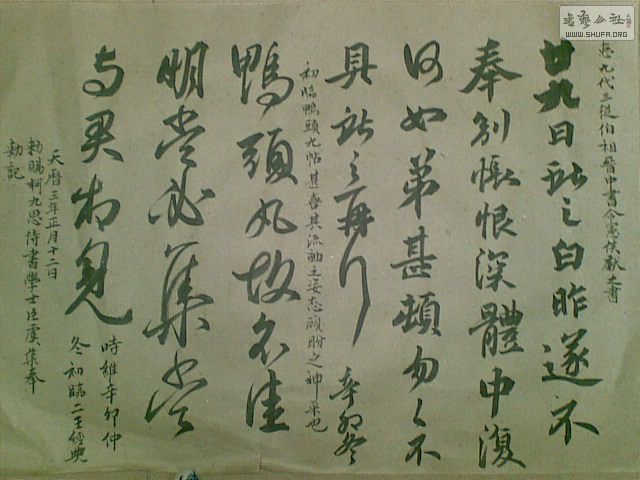 書艺公社
WWW.SHUFA.ORG
九代三從伯祖晉中書令憲侯獻之書
廿九日獻之白昨遂不
奉别悵恨深體中復
何如弟甚頓匆匆不
具獻之再行
辛卯冬
初臨鴨頭丸帖甚喜其流動之姿态顾盼之神采也
鴨頭丸故不佳
明當必集當
与君相見
天曆三年正月十二日
勅賜柯九思侍書學士臣虞集奉
勅記
時維辛卯仲
冬初臨二王經典